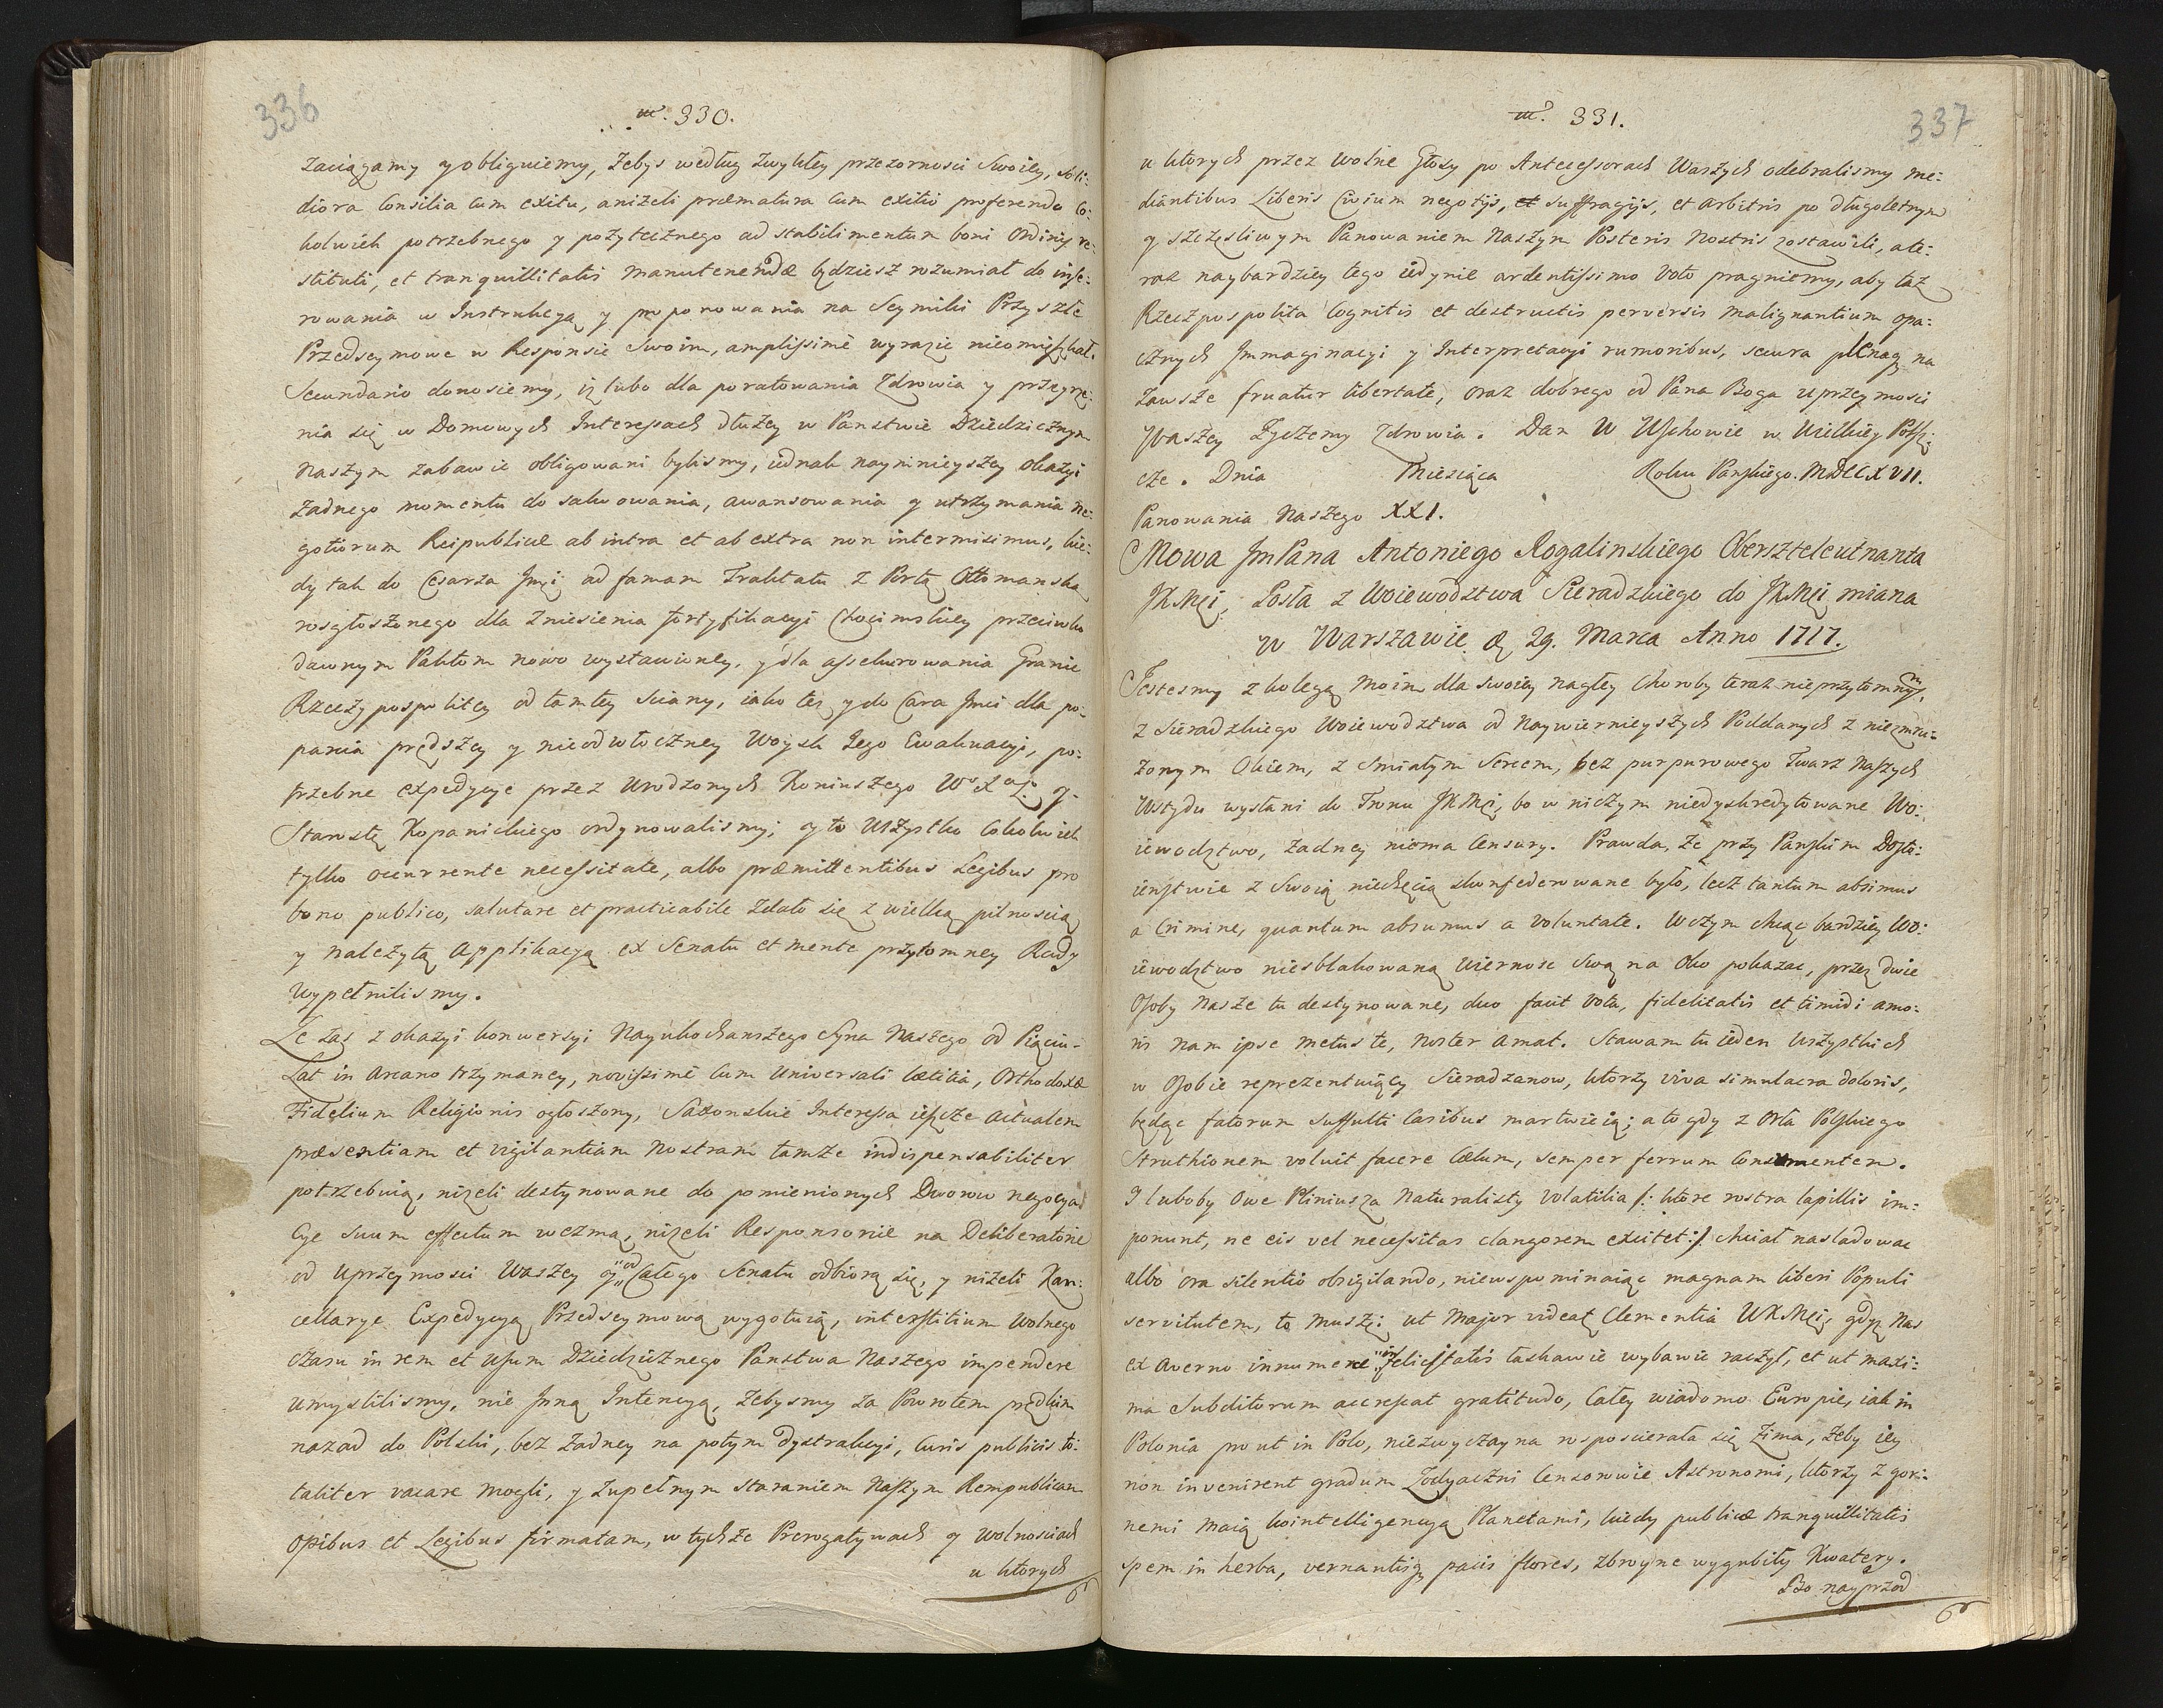 336
330.
zaciągamy y obliguiemy, żebyś według zwykłey przezornosci Swoiey, soli-
diora Consilia cum exitu, aniżeli præmatura cum exitio proferendo co-
kolwiek potrzebnego y pożytecznego ad stabilimentum boni Ordinis re-
stituti, et tranquillitatis manutenendæ będziesz rozumiał do inse-
rowania w Instrukcyą y proponowania na Seymiki Przyszłe
Przedseymowe w Responsie Swoim, amplissimè wyrazić nieomieszkał.
Secundario donosiemy, iż lubo dla poratowania Zdrowia y przeyrze-
nia się w Domowych Interessach dłużey w Panstwie Dziedzicznym
Naszym zabawić obligowani bylismy, iednak naymnieyszey okazyi
żadnego momentu do salwowania, awansowania y utrzymania Ne-
gotiorum Reipublicæ ab intra et ab extra non intermisimus, kie-
dy tak do Cesarza Jmći ad famam Traktatu z Portą Ottomanską
rozgłoszonego dla zniesienia fortyfikacyi Chocimskiey przeciwko
dawnym Paktom nowo wystawioney, y dla assekurowania Granic
Rzeczypospolitey od tamtey sciany, iako też y do Cara Jmći dla po-
parcia prędszey y nieodwłoczney Woysk Jego Ewakuacyi, po-
trzebne expedycye przez Urodzonych Koniuszego W° X° L° y
Starostę Kopanickiego ordynowalismy; y to wszystko cokolwiek
tylko occurrente necessitate, albo præmittentibus Legibus pro
bono publico, salutare et practicabile zdało się z wielką pilnoscią
y należytą applikacyą ex Senatu et mente przytomney Rady
wypełnilismy.
Że zaś z okazyi konwersyi Nayukochanszego Syna Naszego od Pięciu
Lat in arcano trzymaney, novissimè cum universali lætitia, Orthodoxæ
Fidelium Religionis ogłoszony, Saxonskie Interessa ieszcze actualem
præsentiam et vigilantiam Nostram tamże indispensabiliter
potrzebuią, niżeli destynowane do pomienionych Dworow negocya-
cye suum effectum wezmą, niżeli Responsorie na Deliberatorie
od Uprzeymosci Waszey y od Całego Senatu odbiorą się, y niżeli Kan-
cellarye Expedycyą Przedseymową wygotuią, interstitium wolnego
czasu in rem et usum Dziedzicznego Panstwa Naszego impendere
umyslilismy, nie Jnną Intencyą, żebysmy za Powrotem prędkim
nazad do Polski, bez żadney na potym dystrakcyi, Curis publicis to-
taliter vacare mogli, y zupełnym staraniem Naszym Rempublicam
opibus et Legibus firmatam, w tychże Prerogatywach y wolnosciach
u ktorych
337
331.
u ktorych przez wolne Głosy po Antecessorach Waszych odebralismy me-
diantibus Liberis Civium negotijs, et suffragijs, et arbitris po długoletnym
y szczęsliwym Panowaniem Naszym Posteris Nostris zostawili, ate-
raz naybardziey tego iedynie ardentissimo voto pragniemy, aby taż
Rzeczpospolita Cognitis et destructis perversis malignantium opa-
cznych Jmmaginacyi y Interpretacyi rumoribus, secura plena na
zawsze fruatur libertate, oraz dobrego od Pana Boga Uprzeymosci
Waszey życzemy zdrowia. Dan w Wschowie w Wielkiey Polsz-
cze. Dnia Miesiąca Roku Panskiego. MDCCXVII.
Panowania Naszego XXI.
Mowa JmPana Antoniego Rogalinskiego Obersztleutnanta
JKMći, Posła z Woiewodztwa Sieradzkiego do JKMći miana
w Warszawie D 29. Marca Anno 1717.
Jestesmy z kolegą moim dla swoiey nagłey choroby teraz nieprzytomnym,
z Sieradzkiego Woiewodztwa od Naywiernieyszych Poddanych z niezmru-
żonym Okiem, z smiałym Sercem, bez purpurowego Twarz Naszych
wstydu wysłani do Tronu JKMći, bo w niczym niedyskredytowane Wo-
iewodztwo, żadney niema Censury. Prawda, że przy Panskim Dosto-
ienstwie z Swoią niechęcią skonfederowane było, lecz tantum absimus
a Crimine, quantum absumus a voluntate. Wczym chcąc bardziey Wo-
iewodztwo niesblakowaną wiernosc swą na Oko pokazac, przez dwie
Osoby Nasze tu destynowane, duo facit vota, fidelitatis et timidi amo-
ris nam ipse metus te, noster amat. Stawam tu ieden wszystkich
w Osobie reprezentuiący Sieradzanow, ktorzy viva simulacra doloris,
będąc fatorum suffulti casibus martwieią; a to gdy z Orła Polskiego
Struthionem voluit facere Cœlum, semper ferrum consumentem.
I luboby Owe Pliniusza Naturalisty volatilia /: ktore rostra lapillis im-
ponunt, ne eis vel necessitas clangorem excitet:/ chciał nasladowac
albo ora silentio obsigilando, niewspominaiąc magnam liberi Populi
servitutem, to muszę; ut Major videat Clementia WKMći, gdyż Nas
ex averno innumeræ infelicitatis łaskawie wybawić raczył, et ut maxi-
ma Subditorum accrescat gratitudo, całey wiadomo Europie, iak in
Polonia prout in Polo, niezwyczayna rosposcierała się Zima, żeby iey
non invenirent gradum Zodyaczni Censorowie Astronomi, ktorzy z gor-
nemi maią kointelligencyą Planetami, kiedy publicæ tranquillitatis
spem in herba, vernantisq pacis flores, zbroyne wygubiły Kwatery.
Bo nayprzod